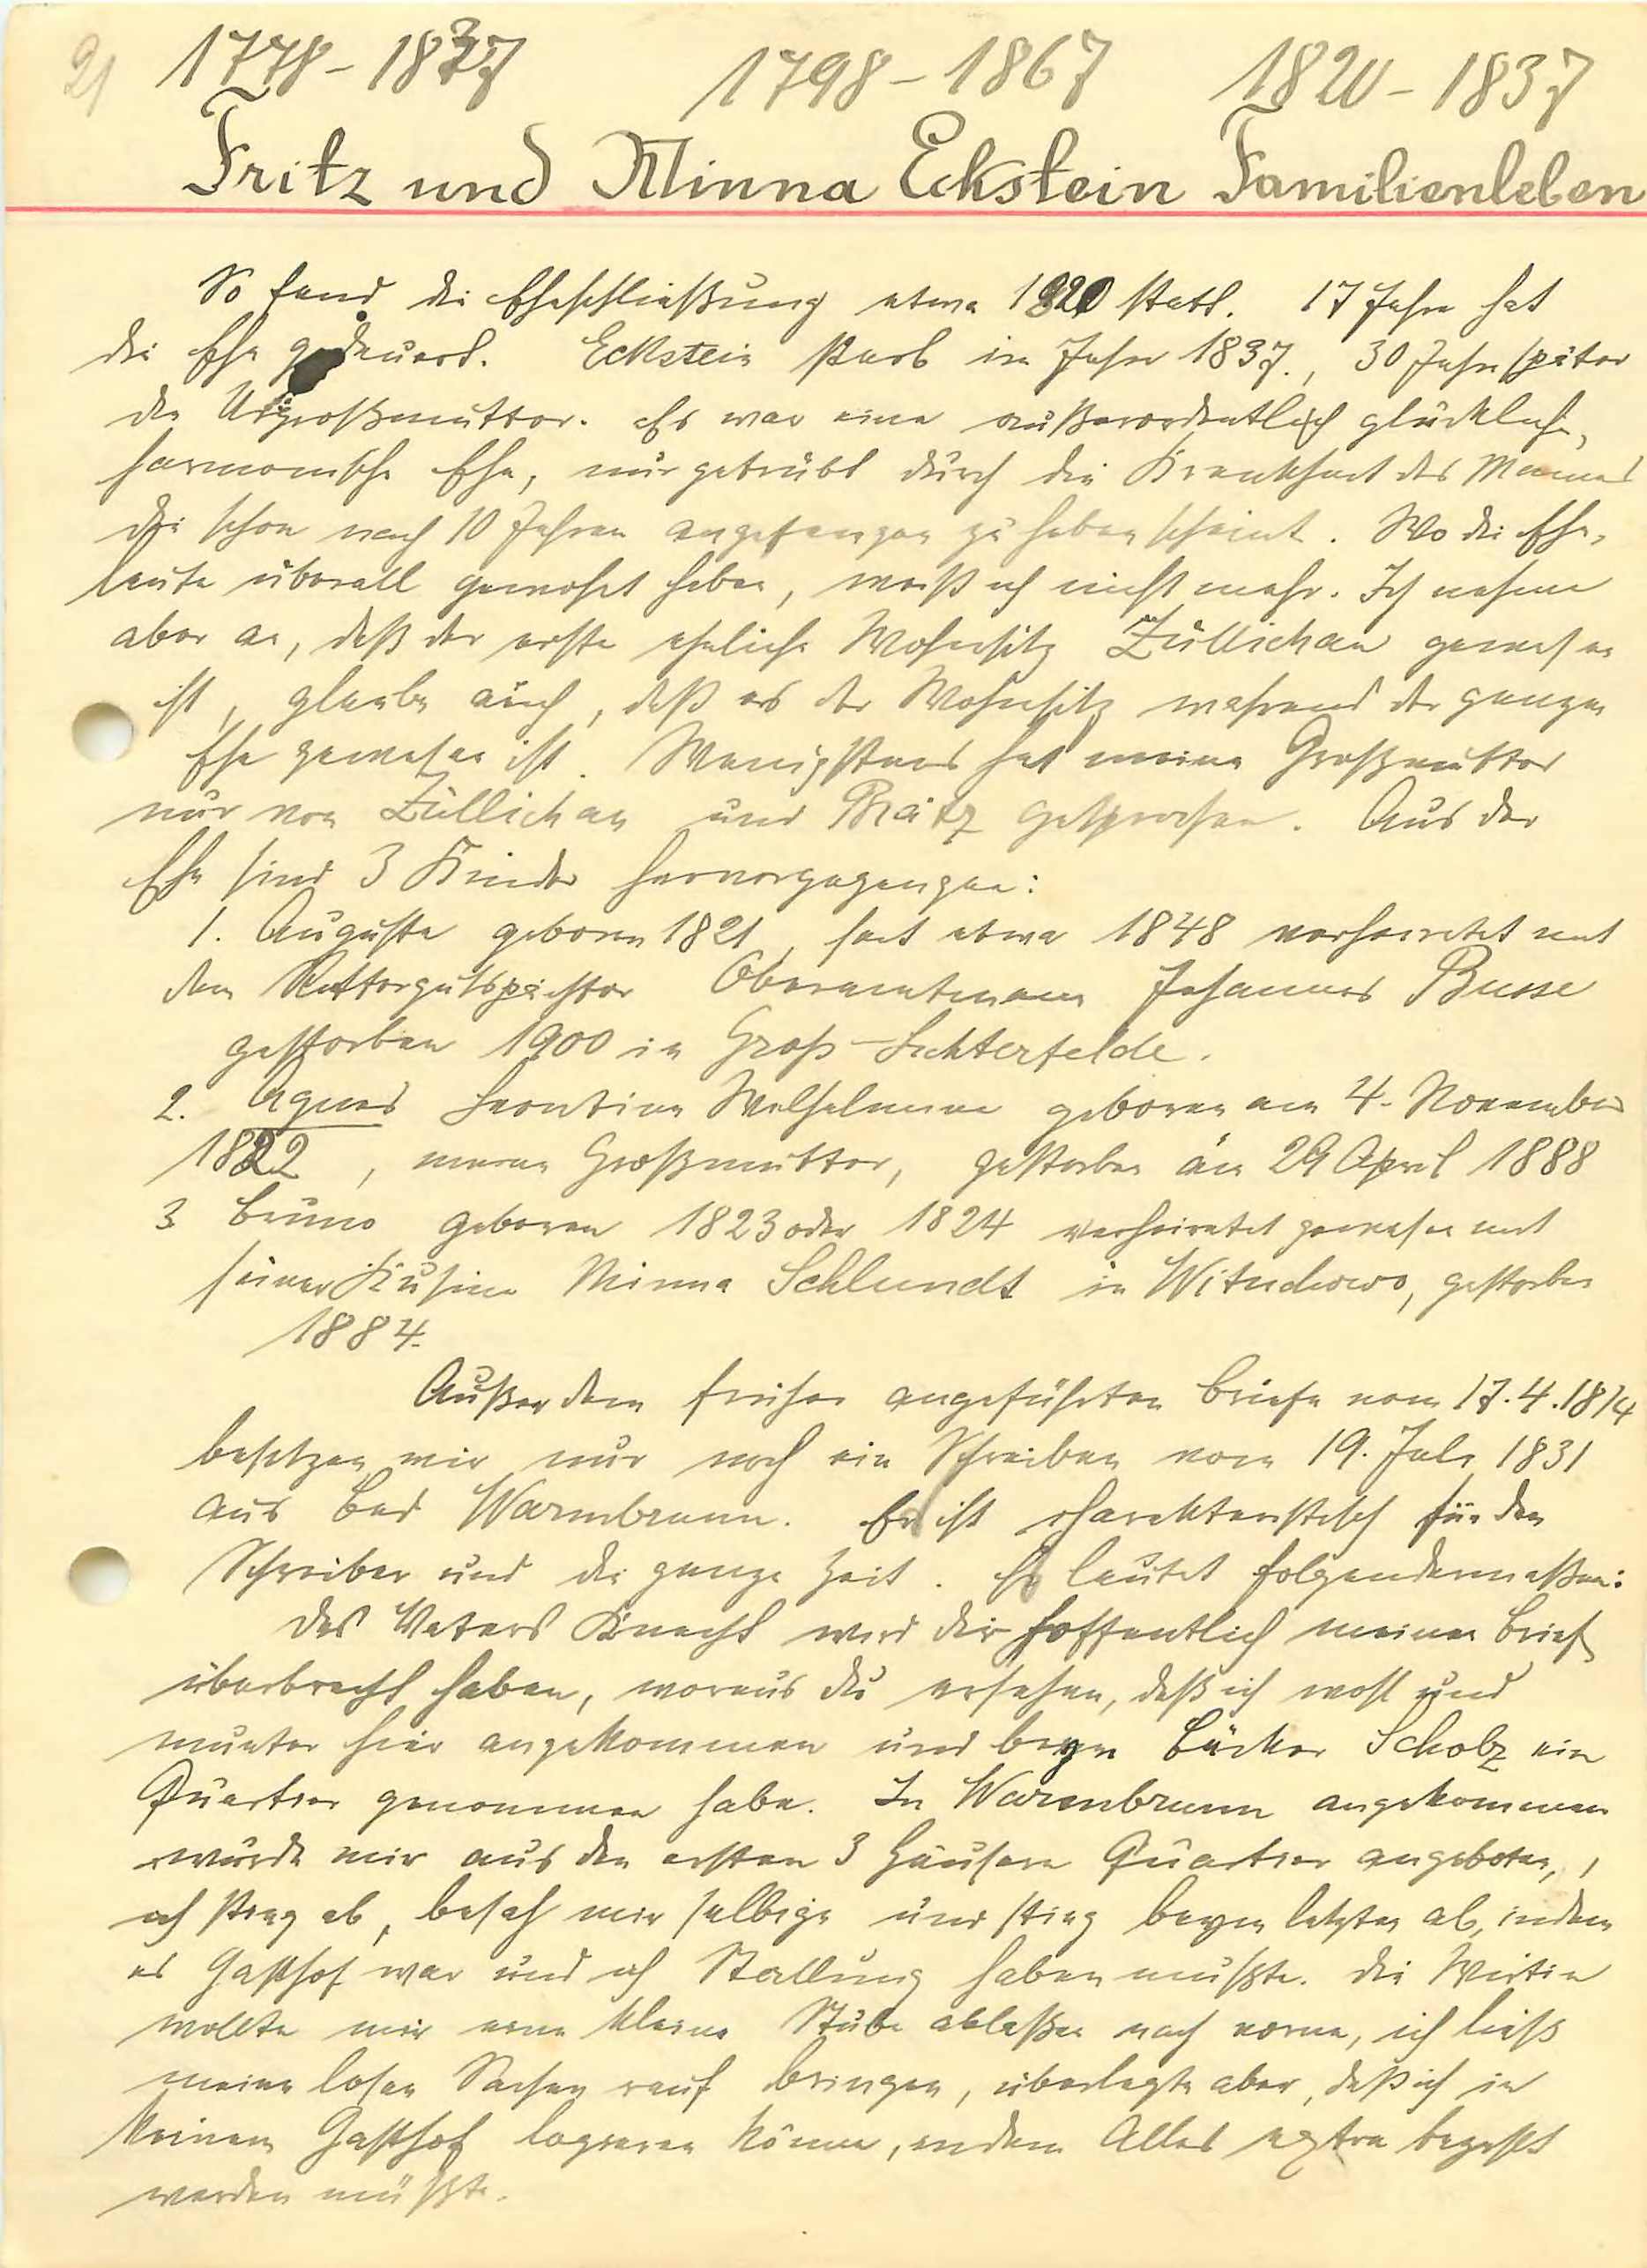 21 1778-1837 1798-1867 1820-1837
Fritz und Minna Eckstein Familienleben
So fand die Eheschließung etwa 1820 statt. 17 Jahre hat
die Ehe gedauert. Eckstein starb im Jahre 1837., 30 Jahre später
die Urgroßmutter. Es war eine außerordentlich glückliche,
harmonische Ehe, nur getrübt durch die Krankheit des Mannes
die schon nach 10 Jahren angefangen zu haben scheint. Wo die Ehe-
leute überall gewohnt haben, weiß ich nicht mehr. Ich nehme
aber an, daß der erste eheliche Wohnsitz Züllichau gewesen
ist, glaube auch, daß es der Wohnsitz während der ganzen
Ehe gewesen ist. Wenigstens hat meine Großmutter
nur von Züllichau und Brätz gesprochen. Aus der
Ehe sind 3 Kinder hervorgegangen:
1. Auguste geboren 1821, seit etwa 1848 verheiratet mit
dem Rittergutspächter Oberamtmann Johannes Busse
gestorben 1900 in Groß-Lichterfelde.
2. Agnes Leontine Wilhelmine geboren am 4. November
1822, meine Großmutter, gestorben am 29 April 1888
3 Bruno geboren 1823 oder 1824 verheiratet gewesen mit
seiner Kusine Minna Schlundt in Wituchowo, gestorben
1884.
Außer dem früher angeführten Briefe vom 17.4.1814
besitzen wir nur noch ein Schreiben vom 19. Juli 1831
aus Bad Warmbrunn. Es ist charakteristisch für den
Schreiber und die ganze Zeit. Es lautet folgendermaßen:
Des Vaters Knecht wird dir hoffentlich meinen Brief
überbracht haben, woraus du ersehen, daß ich wohl und
munter hier angekommen und beym Bäcker Scholz ein
Quartier genommen habe. In Warmbrunn angekommen
wurde mir aus den ersten 3 Häusern Quartier angeboten,
ich stieg ab, besah mir selbige und stieg beym letzten ab, indem
es Gasthof war und ich Stallung haben mußte. Die Wirtin
wollte mir eine kleine Stube ablaßen nach vorne, ich ließ
meine losen Sachen rauf bringen, überlegte aber, daß ich in
keinem Gasthof logieren könne, indem Alles extra bezahlt
werden müßte.